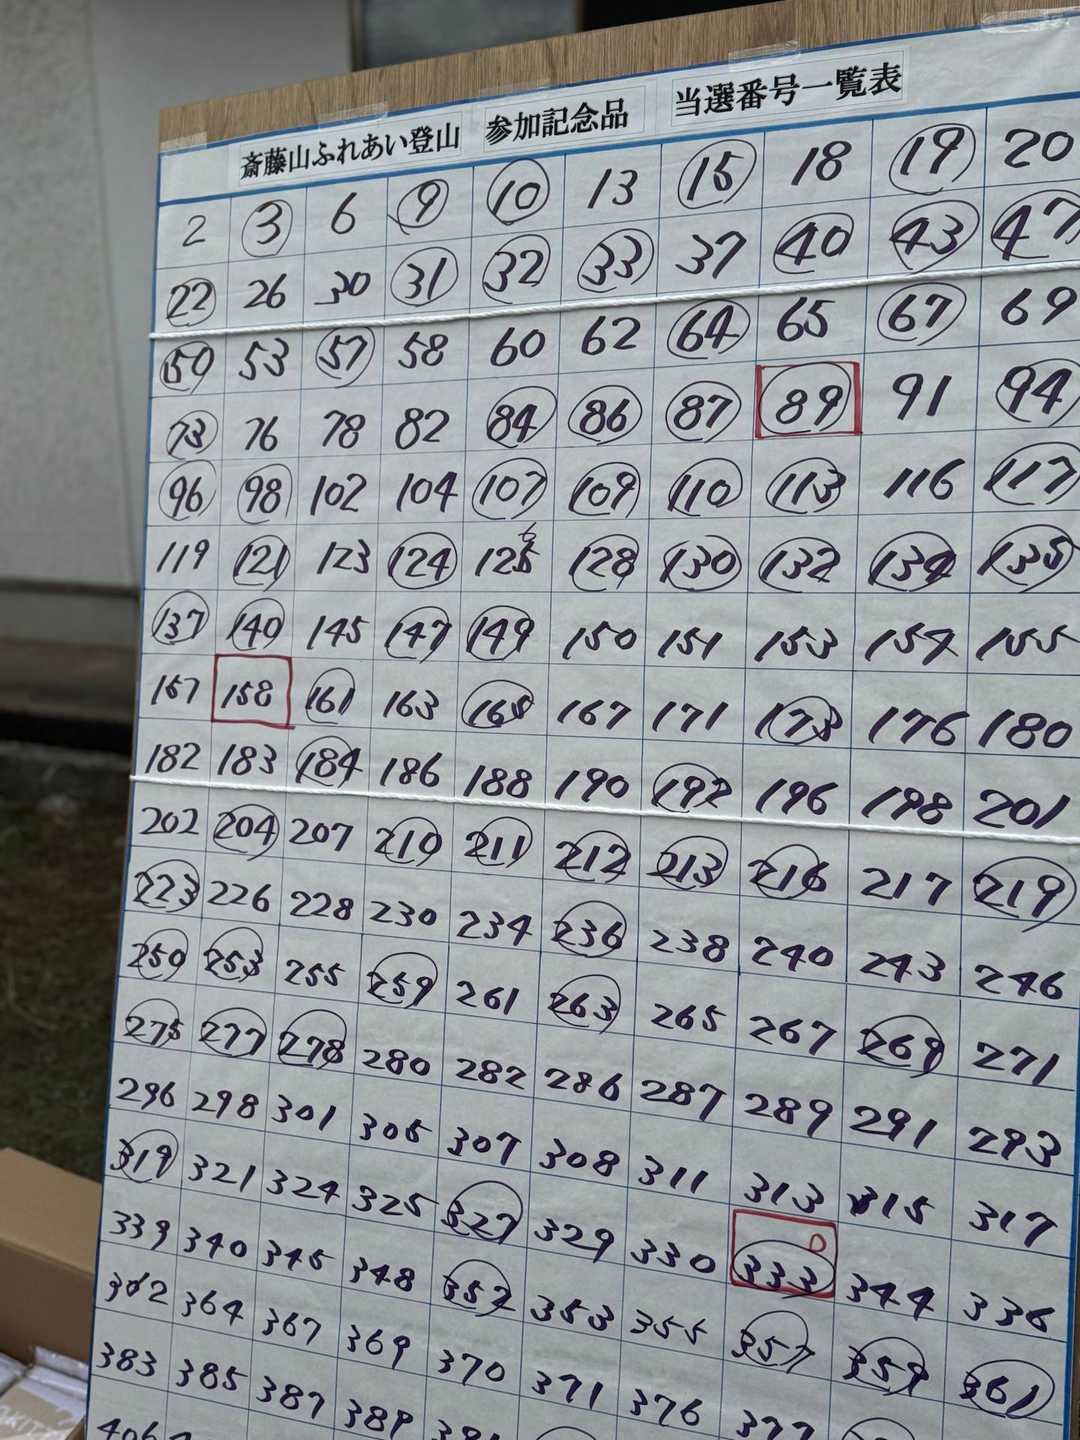 斎藤山ふれあい登山 参加記念品 当選番号一覧表
2 3 6 9 10 13 15 18 19 20
22 26 30 31 32 33 37 40 43 47
50 53 57 58 60 62 64 65 67 69
73 76 78 82 84 86 87 89 91 94
96 98 102 104 107 109 110 113 116 117
119 121 123 124 126 128 130 132 134 135
137 140 145 147 149 150 151 153 154 155
157 158 161 163 165 167 171 173 176 180
182 183 184 186 188 190 192 196 198 201
202 204 207 210 211 212 213 216 217 219
223 226 228 230 234 236 238 240 243 246
250 253 255 259 261 263 265 267 269 271
275 277 278 280 282 286 287 289 291 293
296 298 301 305 307 308 311 313 315 317
319 321 324 325 327 329 330 333 344 336
339 340 345 348 352 353 355 357 359 361
362 364 367 369 370 371 376 377
383 385 387 389
406